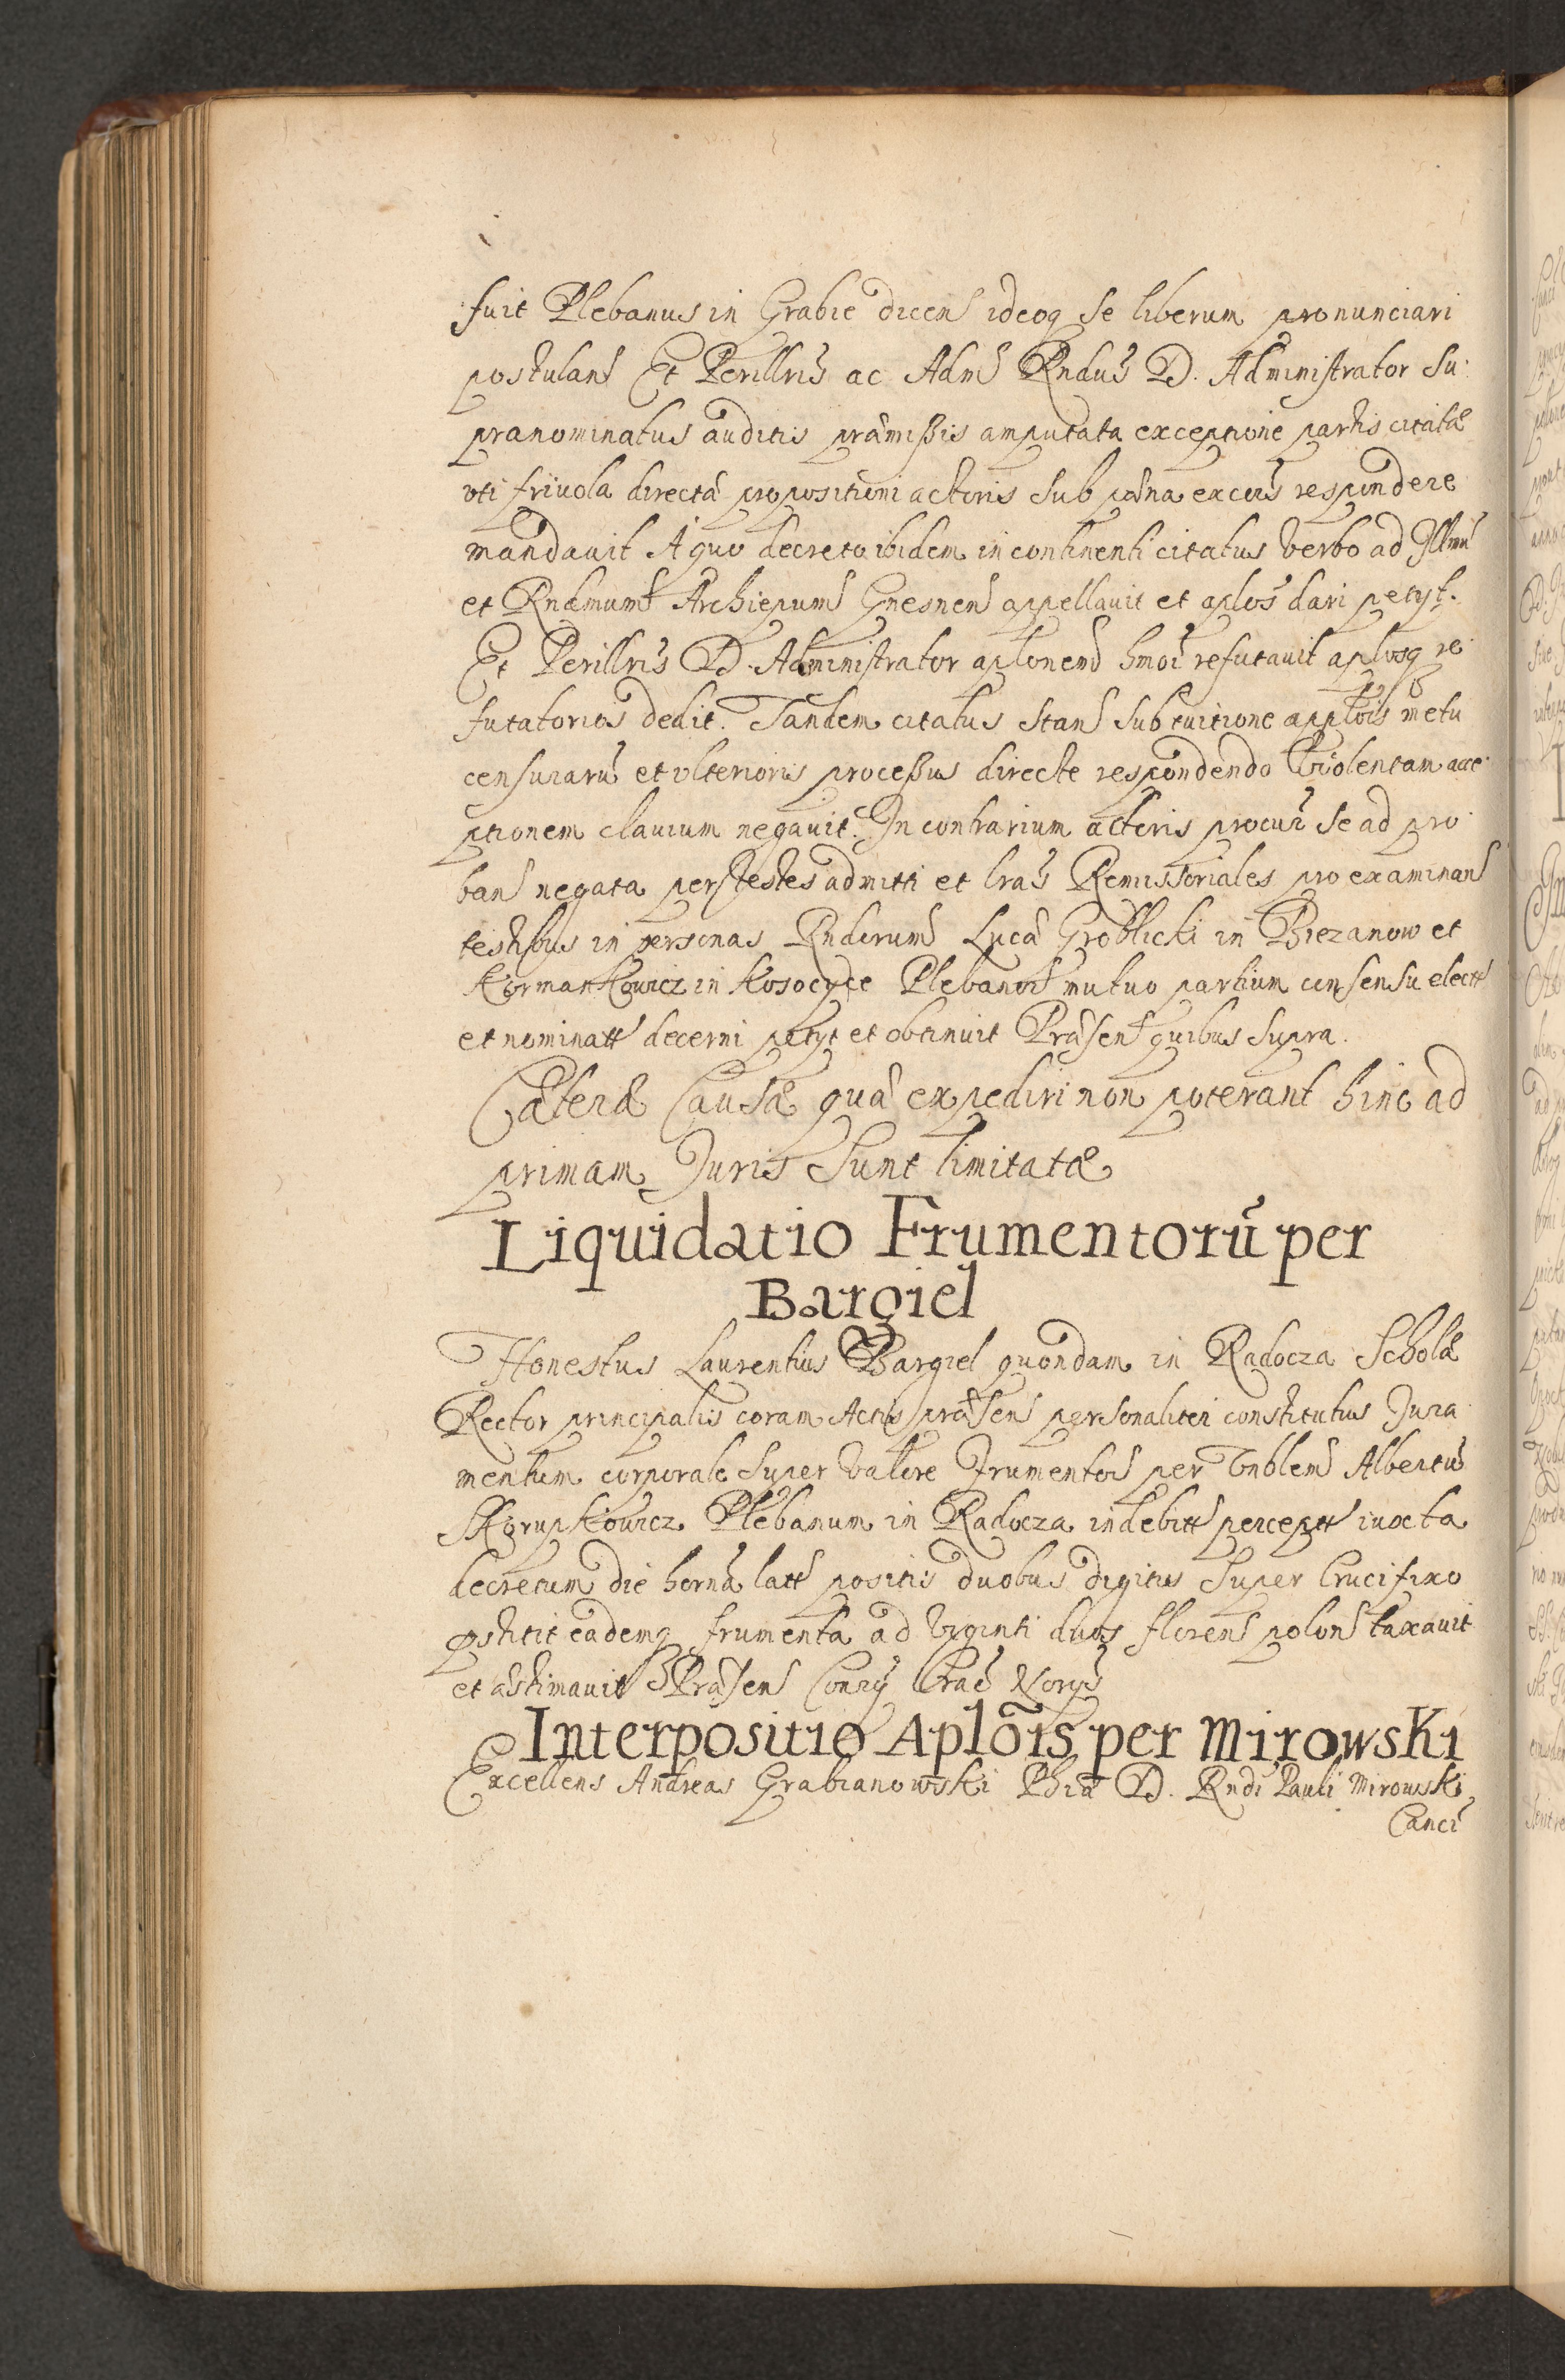 fuit Plebanus in Grabie dicens ideoq se liberum pronunciari
postulans Et Perillris ac Adm Rndus D. Administrator Su:
pranominatus auditis præmißis amputata exceptione partis citatæ
vti friuola directa propositioni actoris sub pæna excois respondere
mandauit A quo decreto ibidem in continenti citatus verbo ad Illmu
et Rndmum Archiepum Gnesnen appellauit et aplos dari petyt.
Et Perillris D. Administrator aplonem hmoi refutauit aplosq re
futatorios dedit. Tandem citatus stans sub tuitione applois metu
censuraru et vlterioris proceßus directe respondendo Violentam acce
ptionem clauium negauit. In contrarium actoris procur se ad pro
ban negata per testes admitti et lras Remissoriales pro examinan
testibus in personas Rndorum Lucæ Groblicki in Biezanow et
Kormankowicz in Kosocyce Plebanor mutuo partium consensu elect
et nominatt decerni petyt et obtinuit Præsent quibus supra.
Cæteræ Causæ quæ expediri non poterant hinc ad
primam Juris Sunt limitatæ
Liquidatio Frumentorū per
Bargiel
Honestus Laurentius Bargiel quondam in Radocza Scholæ
Rector principalis coram Actis præsen personaliter constitutus Jura
mentum corporale super valore frumentor per Vnblem Albertu
Skorupkowicz Plebanum in Radocza indebitt perceptt iuxta
decretum die herna latt positis duobus digitis super Crucifixo
pstitit eademq frumenta ad viginti duos floren polon taxauit
et æstimauit Præsen
Interpositio Aplōis per Mirowski
Excellens Andreas Grabianowski Phiæ D. Rndi Pauli Mirowski
Canci